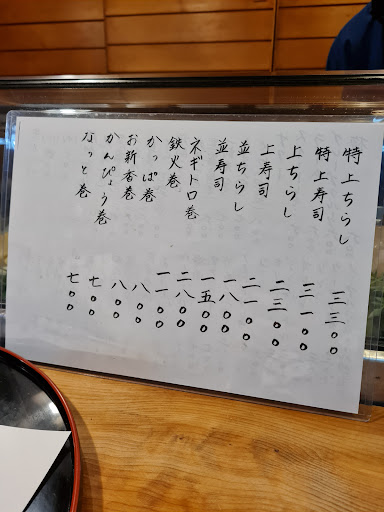 特上ちらし 三三〇〇
特上寿司 三一〇〇
上ちらし 二三〇〇
上寿司 二一〇〇
並ちらし 一八〇〇
並寿司 一五〇〇
ネギトロ巻 二八〇〇
鉄火巻 一一〇〇
かっぱ巻 八〇〇
お新香巻 八〇〇
かんぴょう巻 七〇〇
なっと巻 七〇〇